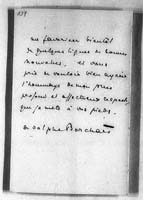 me favoriser bientôt
de quelques lignes de bonnes
nouvelles, et vous
prie de vouloir bien agréer
l'hommage de mes plus
profond et affectueux respect
que je mets à vos pieds.
Adolphe